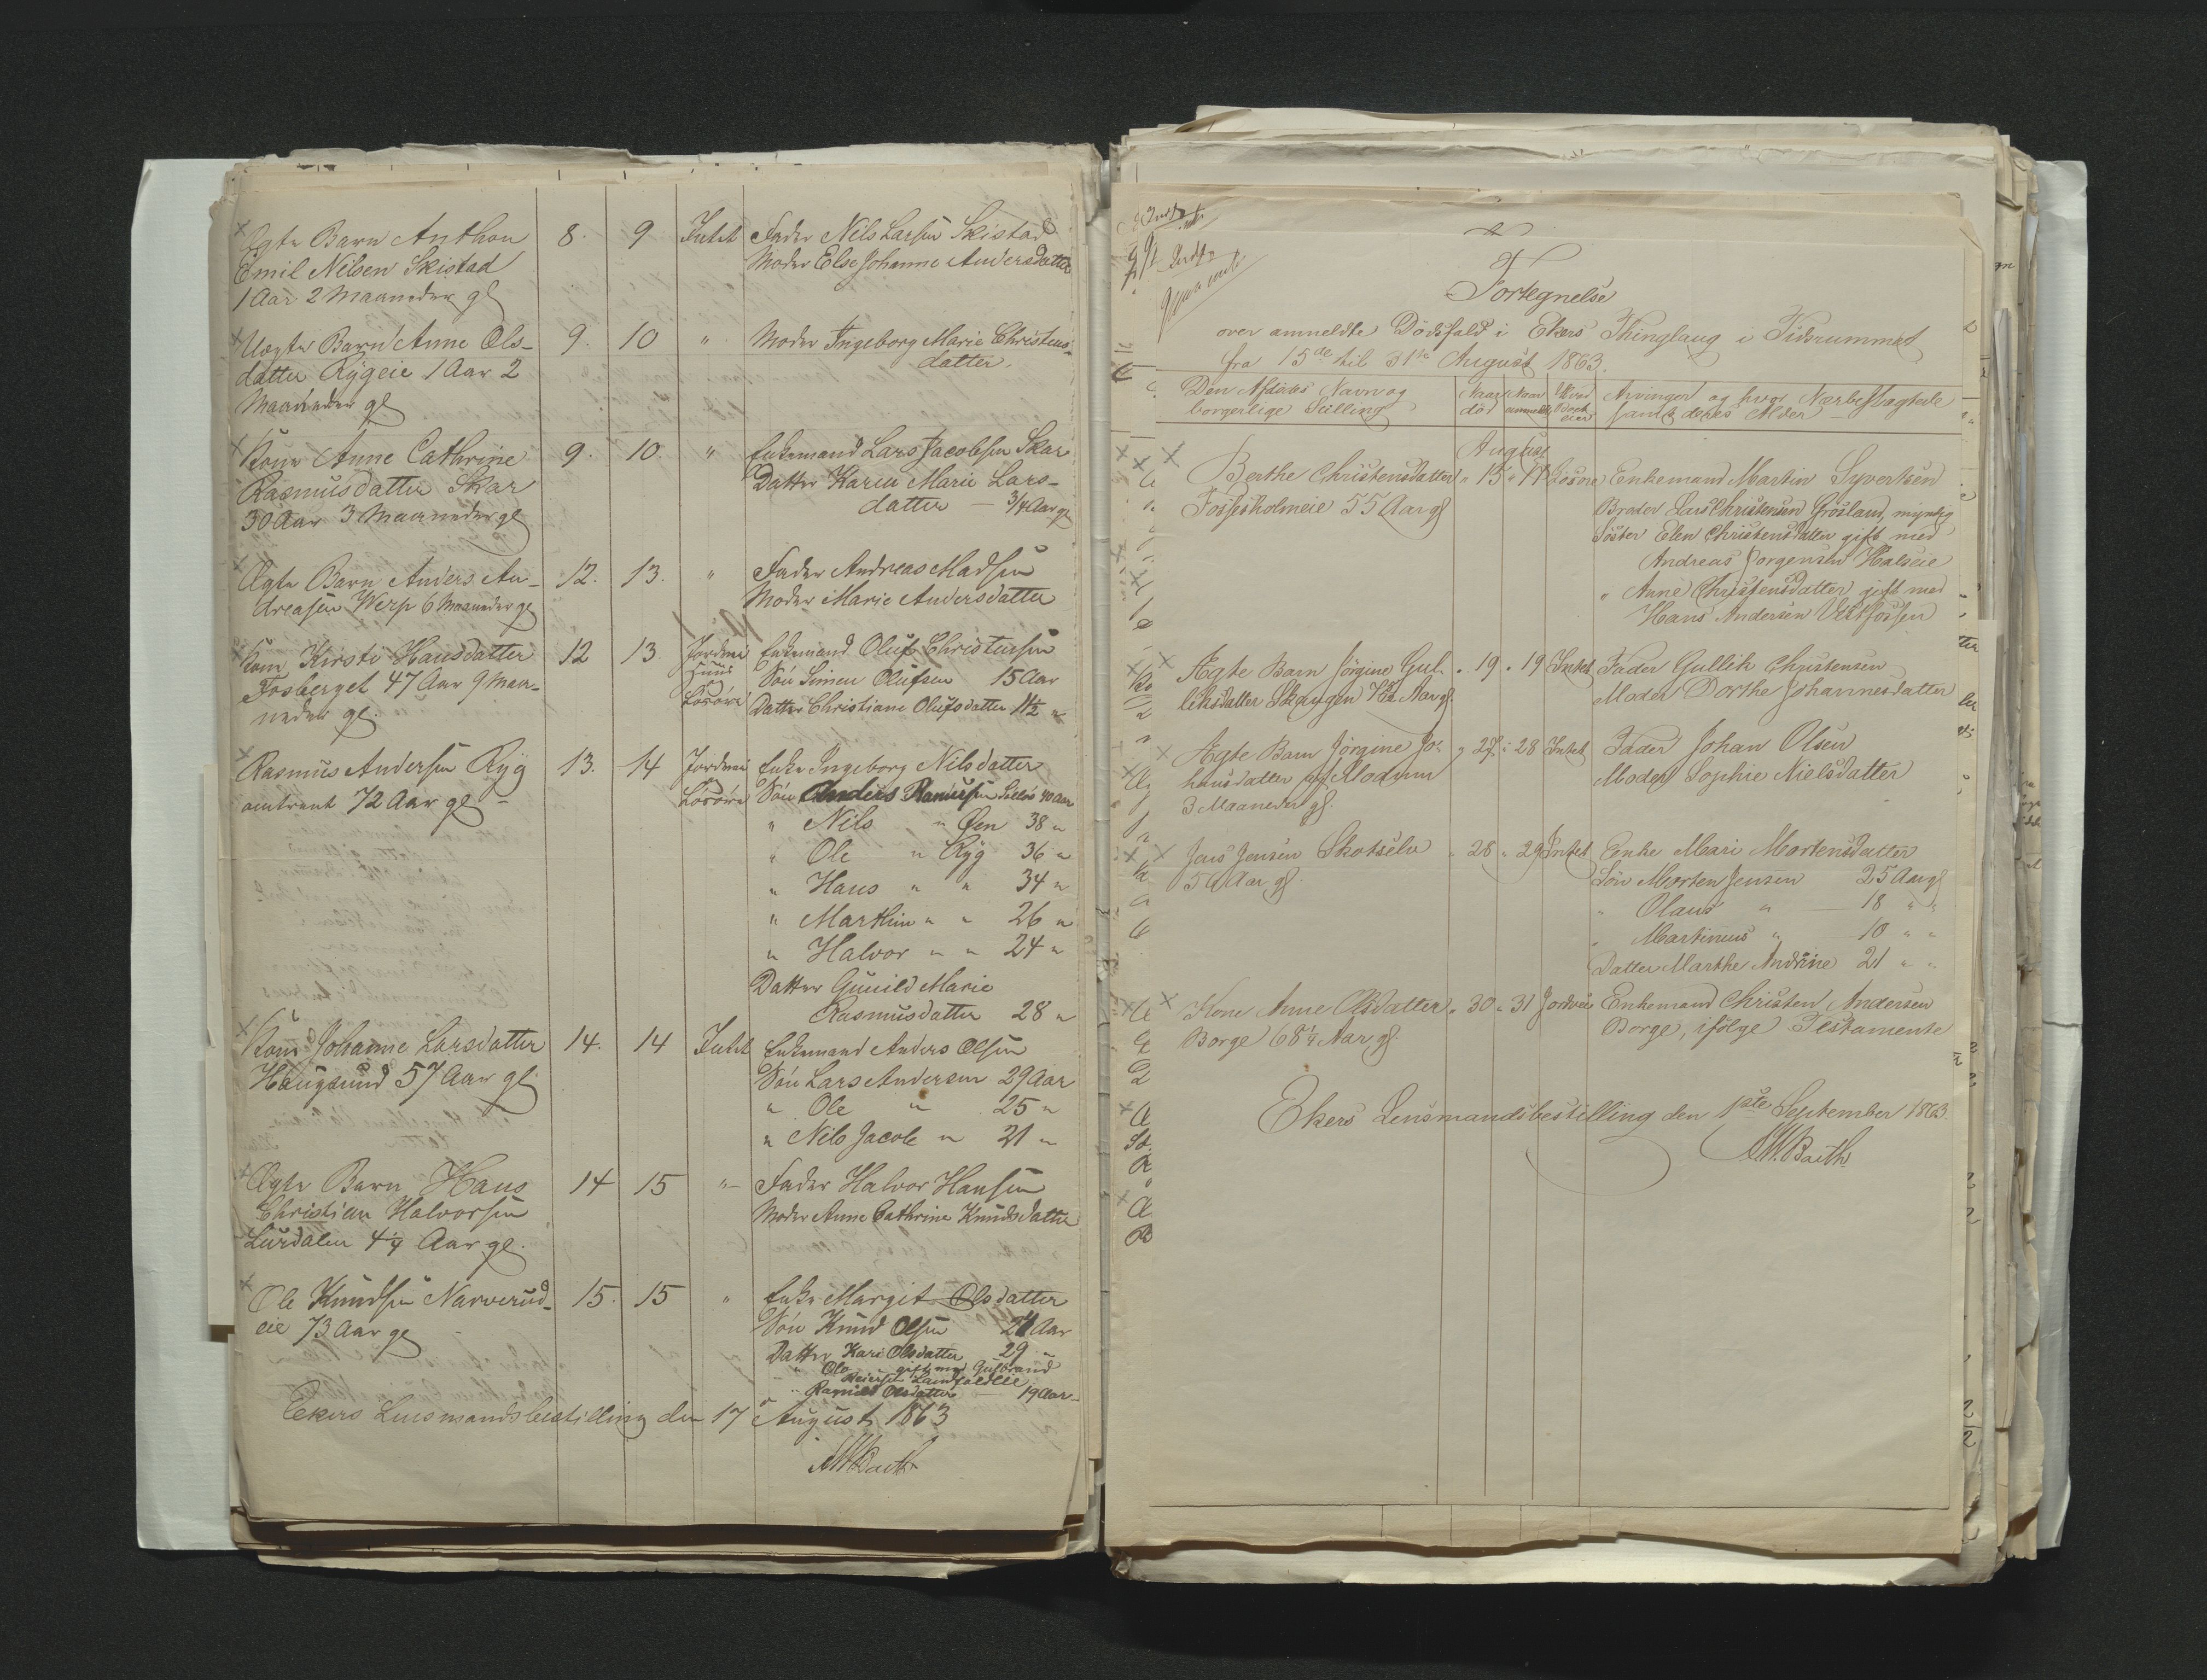 Ægte Barn Anthon 8. 9 Intet Fader Nils Larsen Skistad
Emil Nilsen Skistad Moder Else Johanne Andersdatter
1 Aar 2 Maaneder gl
Uægte Barn Anne Ols- 9. 10 " Moder Ingeborg Marie Christens-
datter Rygeie 1 Aar 2 datter.
Maaneder gl
Kone Anne Cathrine 9. 10. " Enkemand Lars Jacobsen Skar
Rasmusdatter Skar Datter Karen Marie Lars-
30 Aar 3 Maaneder gl datter — 3/4 Aar gl
Ægte Barn Anders An- 12. 13. " Fader Andreas Madsen
dreasen Werp 6 Maaneder gl Moder Marie Andersdatter
Kone Kirsti Hansdatter 12 13. Jordeie Enkemand Oluf Christensen
Fosberget 47 Aar 9 Maa- Huus og Søn Simen Olufsen 15 Aar
neder gl. Løsøre Datter Christiane Olufsdatter 11½ "
Rasmus Andersen Ryg 13. 14 Jordeie Enke Ingeborg Nilsdatter
omtrent 72 Aar gl Løsøre Søn Anders Rasmussen 40 Aar
" Nils " Øen 38 "
" Ole " Ryg 36 "
" Hans " " 34 "
" Marthin " " 26 "
" Halvor " " 24 "
Datter Gunild Marie
Rasmusdatter 28 "
Kone Johanne Larsdatter 14. 14 Intet Enkemand Anders Olsen
Haugsund 57 Aar gl Søn Lars Andersen 29 Aar
" Ole " 25 "
" Nils Jacob " 21 "
Ægte Barn Hans 14 15 " Fader Halvor Hansen
Christian Halvorsen Moder Anne Cathrine Knudsdatter
Lurdalen 4¼ Aar gl.
Ole Knudsen Narverud- 15. 15 " Enke Margit Olsdatter
eie 73 Aar gl Søn Knud Olsen Aar
Datter Kari Olsdatter 29 "
" gift med Gulbrand
Landfaldeie
" Olsdatter — 19 Aar
Ekers Lensmandsbestilling den 17 August 1863
MWBarth
Fortegnelse
over anmeldte Dødsfald i Ekers Thinglaug i Tidsrummet
fra 15de til 31te August 1863.
Den Afdødes Navn og Naar Naar Hvad Arvinger og hvor Nærbeslægtede
borgerlige Stilling død anmeldt Boet eier samt deres Alder
August
Berthe Christensdatter " 15 " 17 Løsøre Enkemand Martin Syvertsen
Fossesholmeie 55 Aar gl Broder Lars Christensen Grøsland, myndig
Søster Elen Christensdatter gift med
Andreas Jorgensen Halseie
" Anne Christensdatter gift med
Hans Andersen Vestfossen
Ægte Barn Jörgine Gul- " 19 " 19 Intet Fader Gullik Christensen
liksdatter Skaugen Aar gl. Moder Dorthe Johannesdatter
Ægte Barn Jörgine Jo- " 27 " 28 Intet Fader Johan Olsen
hansdatter af Modum Moder Sophie Nielsdatter
3 Maaneder gl.
Jens Jensen Skotselv " 28 " 29 Intet Enke Mari Mortensdatter
Aar gl. Søn Morten Jensen 25 Aar gl
" Olaus " — 18 " "
" Martinius " 10 " "
Datter Marthe Andrine 21 " "
Kone Anne Olsdatter " 30 " 31 Jordeie Enkemand Christen Andersen
Borge 68¼ Aar gl. Borge, ifølge Testamente
Ekers Lensmandsbestilling den 1ste September 1863.
MWBarth